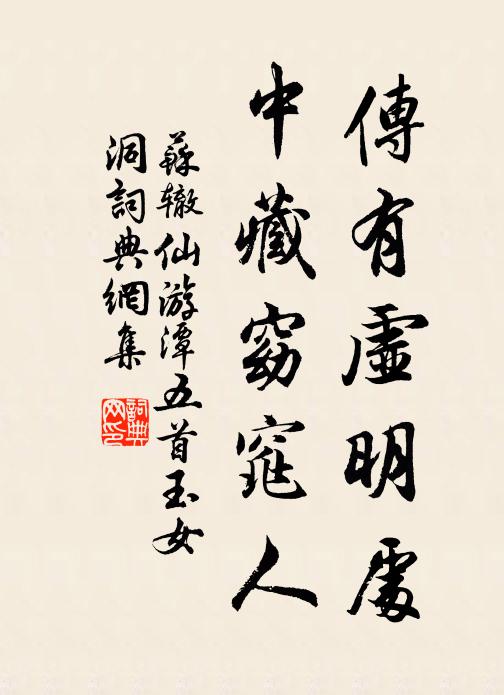 傳有虛明處
中藏窈窕人
蘇辙仙游潭五首玉女
洞詞典網集
詞典
网印